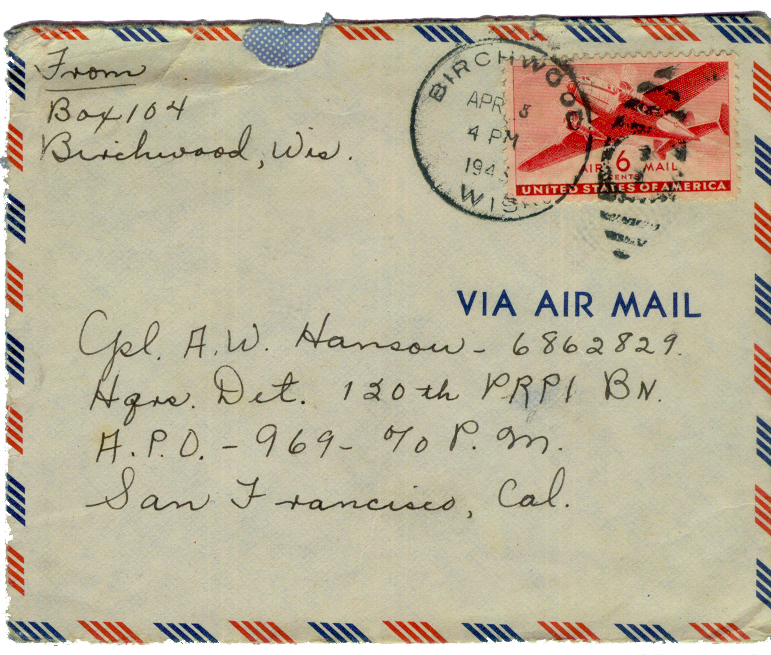 From
Box 104
Birchwood, Wis.
BIRCHWOOD
APR
4 PM
WIS.
AIR 6 MAIL
CENTS
UNITED STATES OF AMERICA
VIA AIR MAIL
Cpl. A.W. Hanson - 6862829.
Hqrs. Det. 120th PRPI BN.
A.P.O. - 969 - % P.M.
San Francisco, Cal.